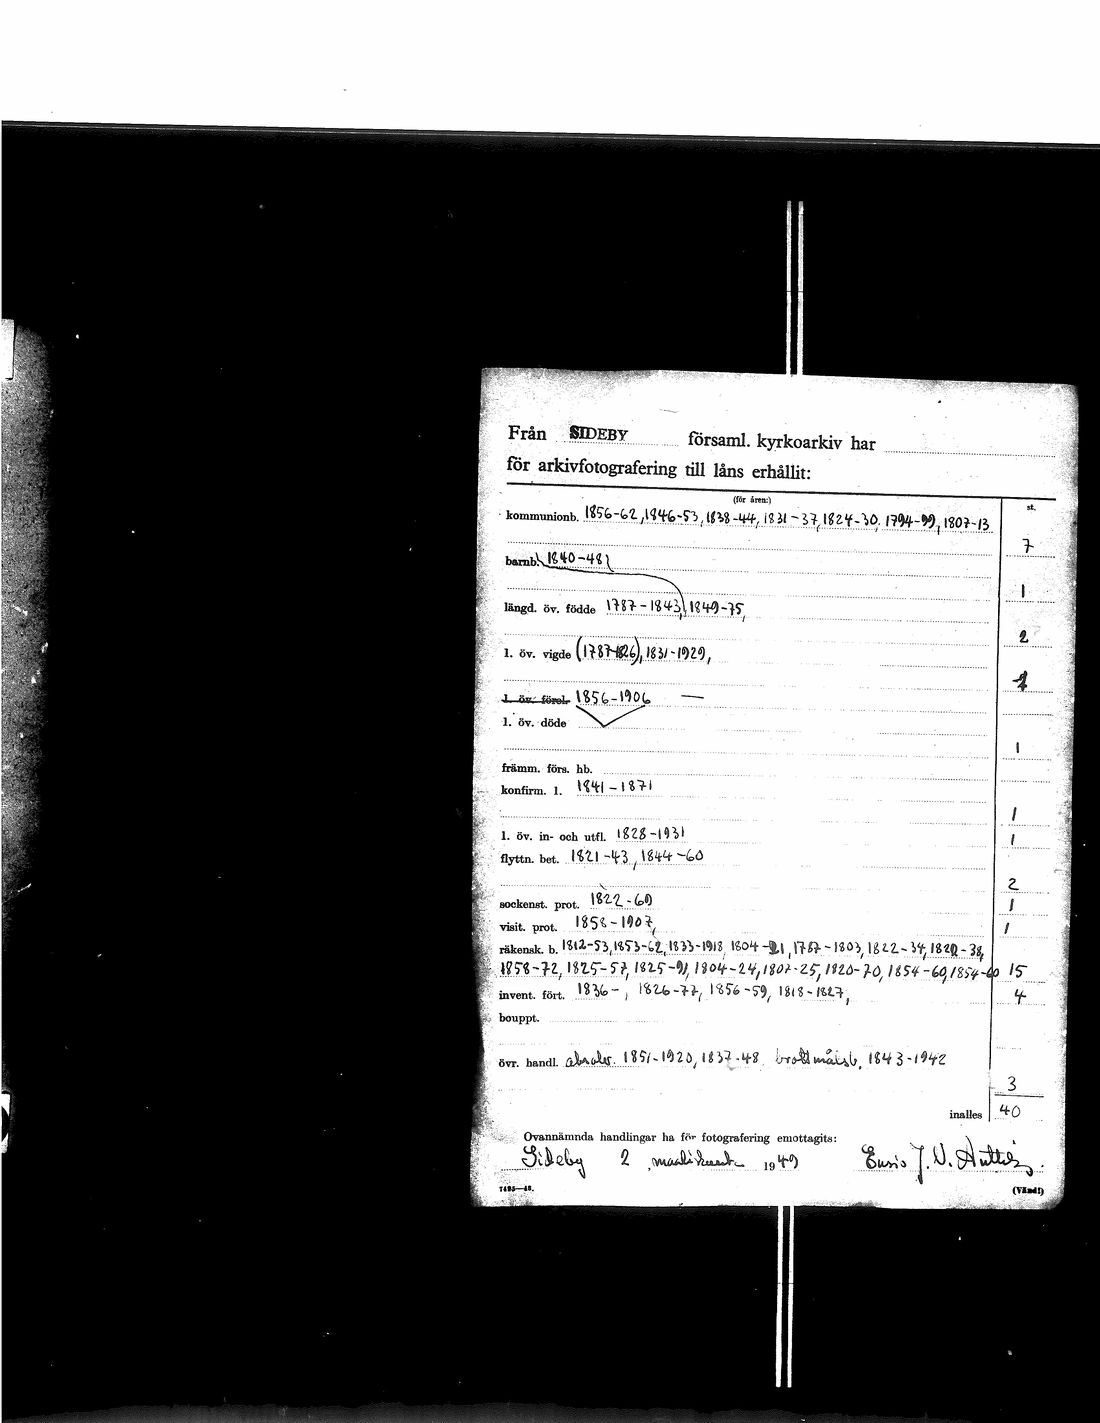 Från SIDEBY församl. kyrkoarkiv har
för arkivfotografering till låns erhållit:
(för åren:) st.
kommunionb. 1856-62, 1846-53, 1838-44, 1831-37, 1824-30, 1794-99, 1807-13
7
barnb. 1840-48
1
längd. öv. födde 1787-1843, 1849-75,
2
l. öv. vigde (1787-1826), 1831-1929,
l. öv. förel. 1856-1906 —
l. öv. döde
1
främm. förs. hb.
konfirm. l. 1841-1871
1
l. öv. in- och utfl. 1828-1931 1
flyttn. bet. 1821-43, 1844-60
2
sockenst. prot. 1822-69 1
visit. prot. 1858-1907, 1
räkensk. b. 1812-53, 1853-62, 1833-1918, 1804-21, 1787-1803, 1822-34, 1822-38,
1858-72, 1825-57, 1825-91, 1804-24, 1807-25, 1820-70, 1854-69, 1854-60 15
invent. fört. 1836- , 1826-77, 1856-59, 1818-1827, 4
bouppt.
övr. handl. 1851-1920, 1837-48 brottmålsb. 1843-1942
3
inalles 40
Ovannämnda handlingar ha för fotografering emottagits:
Sideby 2 maaliskuuta 1949
7495—48. (Vänd!)